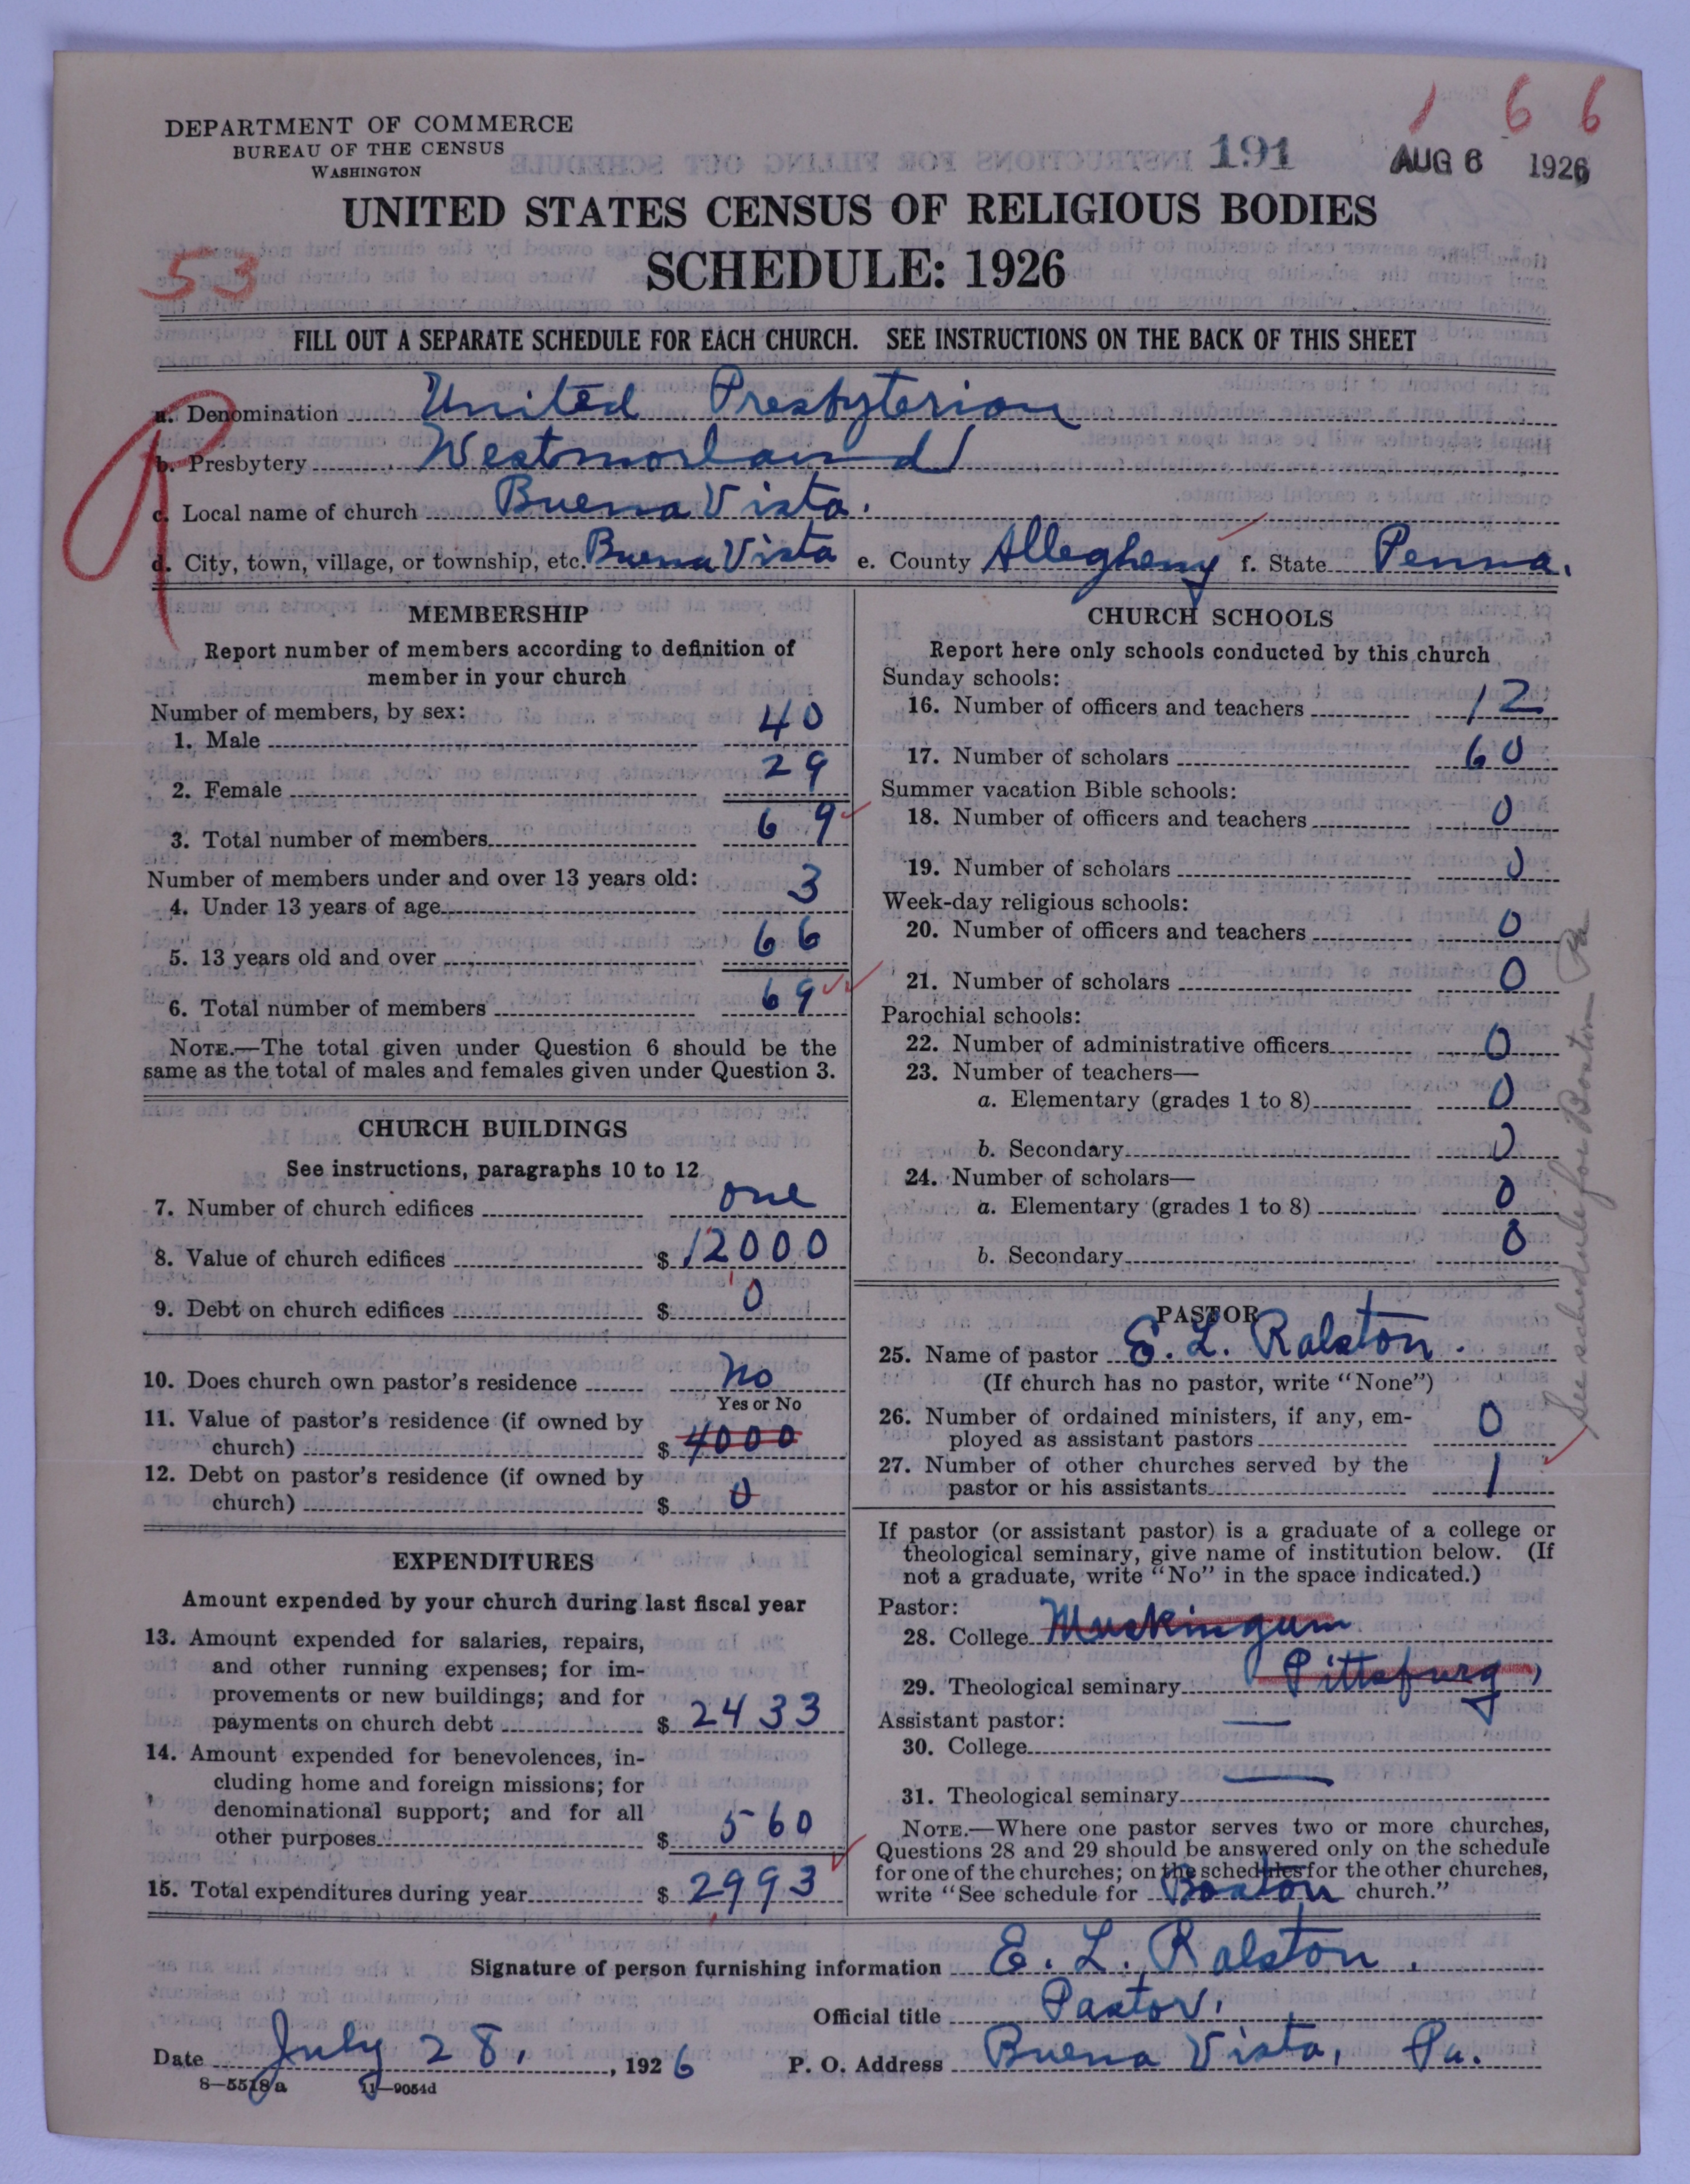 1 6 6
DEPARTMENT OF COMMERCE
BUREAU OF THE CENSUS
WASHINGTON
191
AUG 6 1926
UNITED STATES CENSUS OF RELIGIOUS BODIES
SCHEDULE: 1926
53
FILL OUT A SEPARATE SCHEDULE FOR EACH CHURCH. SEE INSTRUCTIONS ON THE BACK OF THIS SHEET
a. Denomination United Presbyterian
b. Presbytery Westmorland
c. Local name of church Buena Vista.
d. City, town, village, or township, etc. Buena Vista e. County Allegheny f. State Penna.
MEMBERSHIP
Report number of members according to definition of
member in your church
Number of members, by sex:
1. Male 40
2. Female 29
3. Total number of members 69
Number of members under and over 13 years old:
4. Under 13 years of age 3
5. 13 years old and over 66
6. Total number of members 69
NOTE.—The total given under Question 6 should be the
same as the total of males and females given under Question 3.
CHURCH BUILDINGS
See instructions, paragraphs 10 to 12
7. Number of church edifices one
8. Value of church edifices $ 12000
9. Debt on church edifices $ 0
10. Does church own pastor's residence No
Yes or No
11. Value of pastor's residence (if owned by
church) $ 4000
12. Debt on pastor's residence (if owned by
church) $ 0
EXPENDITURES
Amount expended by your church during last fiscal year
13. Amount expended for salaries, repairs,
and other running expenses; for im-
provements or new buildings; and for
payments on church debt $ 2433
14. Amount expended for benevolences, in-
cluding home and foreign missions; for
denominational support; and for all
other purposes $ 560
15. Total expenditures during year $ 2993
CHURCH SCHOOLS
Report here only schools conducted by this church
Sunday schools:
16. Number of officers and teachers 12
17. Number of scholars 60
Summer vacation Bible schools:
18. Number of officers and teachers 0
19. Number of scholars 0
Week-day religious schools:
20. Number of officers and teachers 0
21. Number of scholars 0
Parochial schools:
22. Number of administrative officers 0
23. Number of teachers—
a. Elementary (grades 1 to 8) 0
b. Secondary 0
24. Number of scholars—
a. Elementary (grades 1 to 8) 0
b. Secondary 0
PASTOR
25. Name of pastor E. L. Ralston.
(If church has no pastor, write "None")
26. Number of ordained ministers, if any, em-
ployed as assistant pastors 0
27. Number of other churches served by the
pastor or his assistants 1
If pastor (or assistant pastor) is a graduate of a college or
theological seminary, give name of institution below. (If
not a graduate, write "No" in the space indicated.)
Pastor:
28. College Muskingum
29. Theological seminary Pittsburg,
Assistant pastor:
30. College —
31. Theological seminary —
NOTE.—Where one pastor serves two or more churches,
Questions 28 and 29 should be answered only on the schedule
for one of the churches; on the schedules for the other churches,
write "See schedule for Boston church."
See schedule for Boston Pa
Signature of person furnishing information E. L. Ralston.
Official title Pastor.
Date July 28, 1926 P. O. Address Buena Vista, Pa.
8—5518a 11—9054d